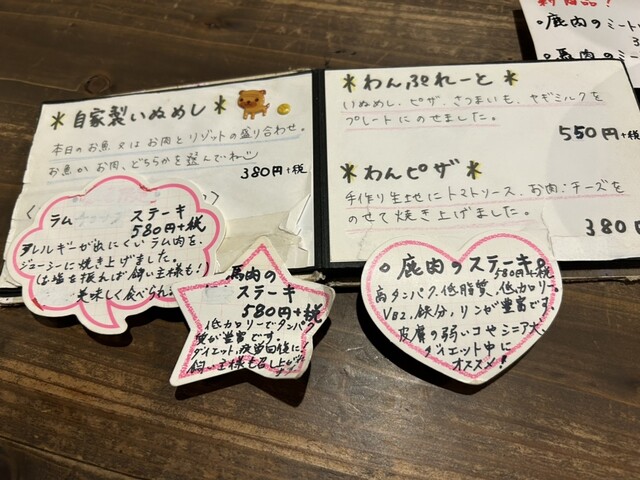 ＊自家製いぬめし＊
本日のお魚又はお肉とリゾットの盛り合わせ。
お魚かお肉、どちらかを選んでね
380円+税
ラム ステーキ
580円+税
アレルギーが出にくいラム肉を、
ジューシーに焼き上げました。
(お塩を振えば飼い主様も!
美味しく食べられ
馬肉の
ステーキ
580円+税
低カロリーでタンパク
質が豊富です。
ダイエット、疲労回復に
飼い主様も召し上が
＊わんぷれーと＊
いぬめし、ピザ、さつまいも、ヤギミルクを
プレートにのせました。
550円+税
＊わんピザ＊
手作り生地にトマトソース、お肉、チーズを
のせて焼き上げました。
380円
鹿肉のステーキ
580円+税
高タンパク、低脂質、低カロリー。
VB2、鉄分、リンが豊富です。
皮膚の弱いコやシニア犬、
ダイエット中に
オススメ!
新商品?
鹿肉のミート
3
馬肉のミー